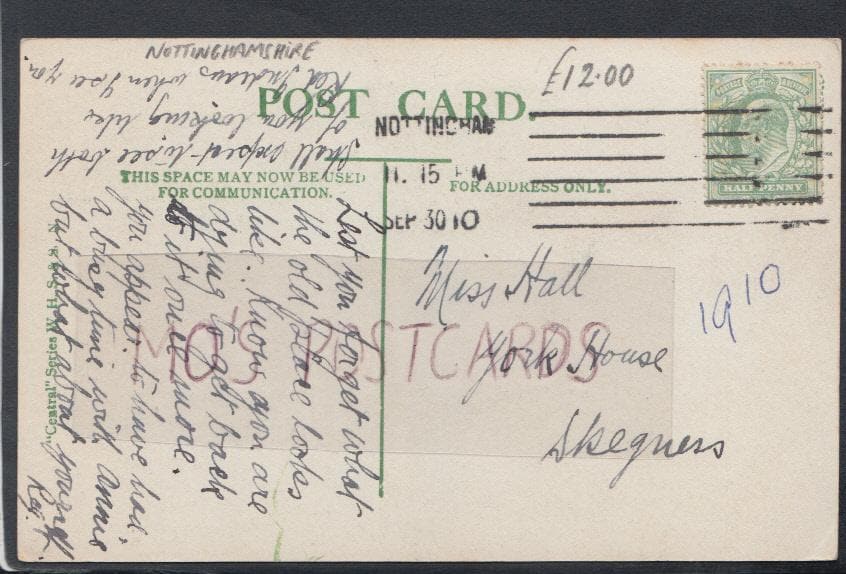 NOTTINGHAMSHIRE
£12.00
POST CARD.
THIS SPACE MAY NOW BE USED
FOR COMMUNICATION.
FOR ADDRESS ONLY.
NOTTINGHAM
11. 15 PM
SEP 30 10
HALFPENNY
Miss Hall
York House
Skegness
1910
MO'S POSTCARDS
"Central" Series W. H. S.
Lest you forget what
the old place looks
like. Know you are
dying to get back
to it once more.
you appear to have had
a busy time with Annie
but what about yourself
Reg. H.
Shall expect to see both
of you looking like
Red Indians when I see you.